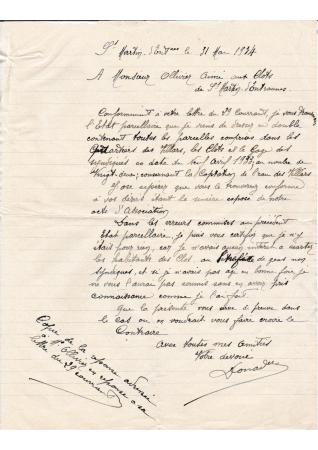 St Martin d'Entnes le 31 Mai 1924
A Monsieur Ollivier Aimé aux Clots
de St Martin d'Entraunes.
Conformément à votre lettre du 29 Courant, je vous
l'Etat parcellaire que je viens de dresser en double
contenant toutes les parcelles comprises dans les
quartiers des Villars, les Clots et le
en date du Avril au nombre de
vingt-deux; concernant la Captation de l'eau des Villars
J'ose espérer que vous le trouverez conforme
à vos désirs étant la sincère exposé de notre
acte d'Association.
Dans les erreurs commises au précédent
Etat parcellaire, je puis vous certifier que je n'y
étais pour rien, car je n'avais aucun intérêt à écarter
les habitants des Clots au de gens non
syndiqués, et si je n'avais pas agi en bonne foi je
ne vous l'aurai pas soumis sans en avoir pris
connaissance comme je l'ai fait.
Que la présente vous serve de preuve dans
le cas ou on voudrait vous faire croire le
Contraire
Avec toutes mes amitiés
Votre dévoué
Donadey
Copie de la réponse adressée
à Mr Ollivier en réponse à sa
lettre du 29 courant